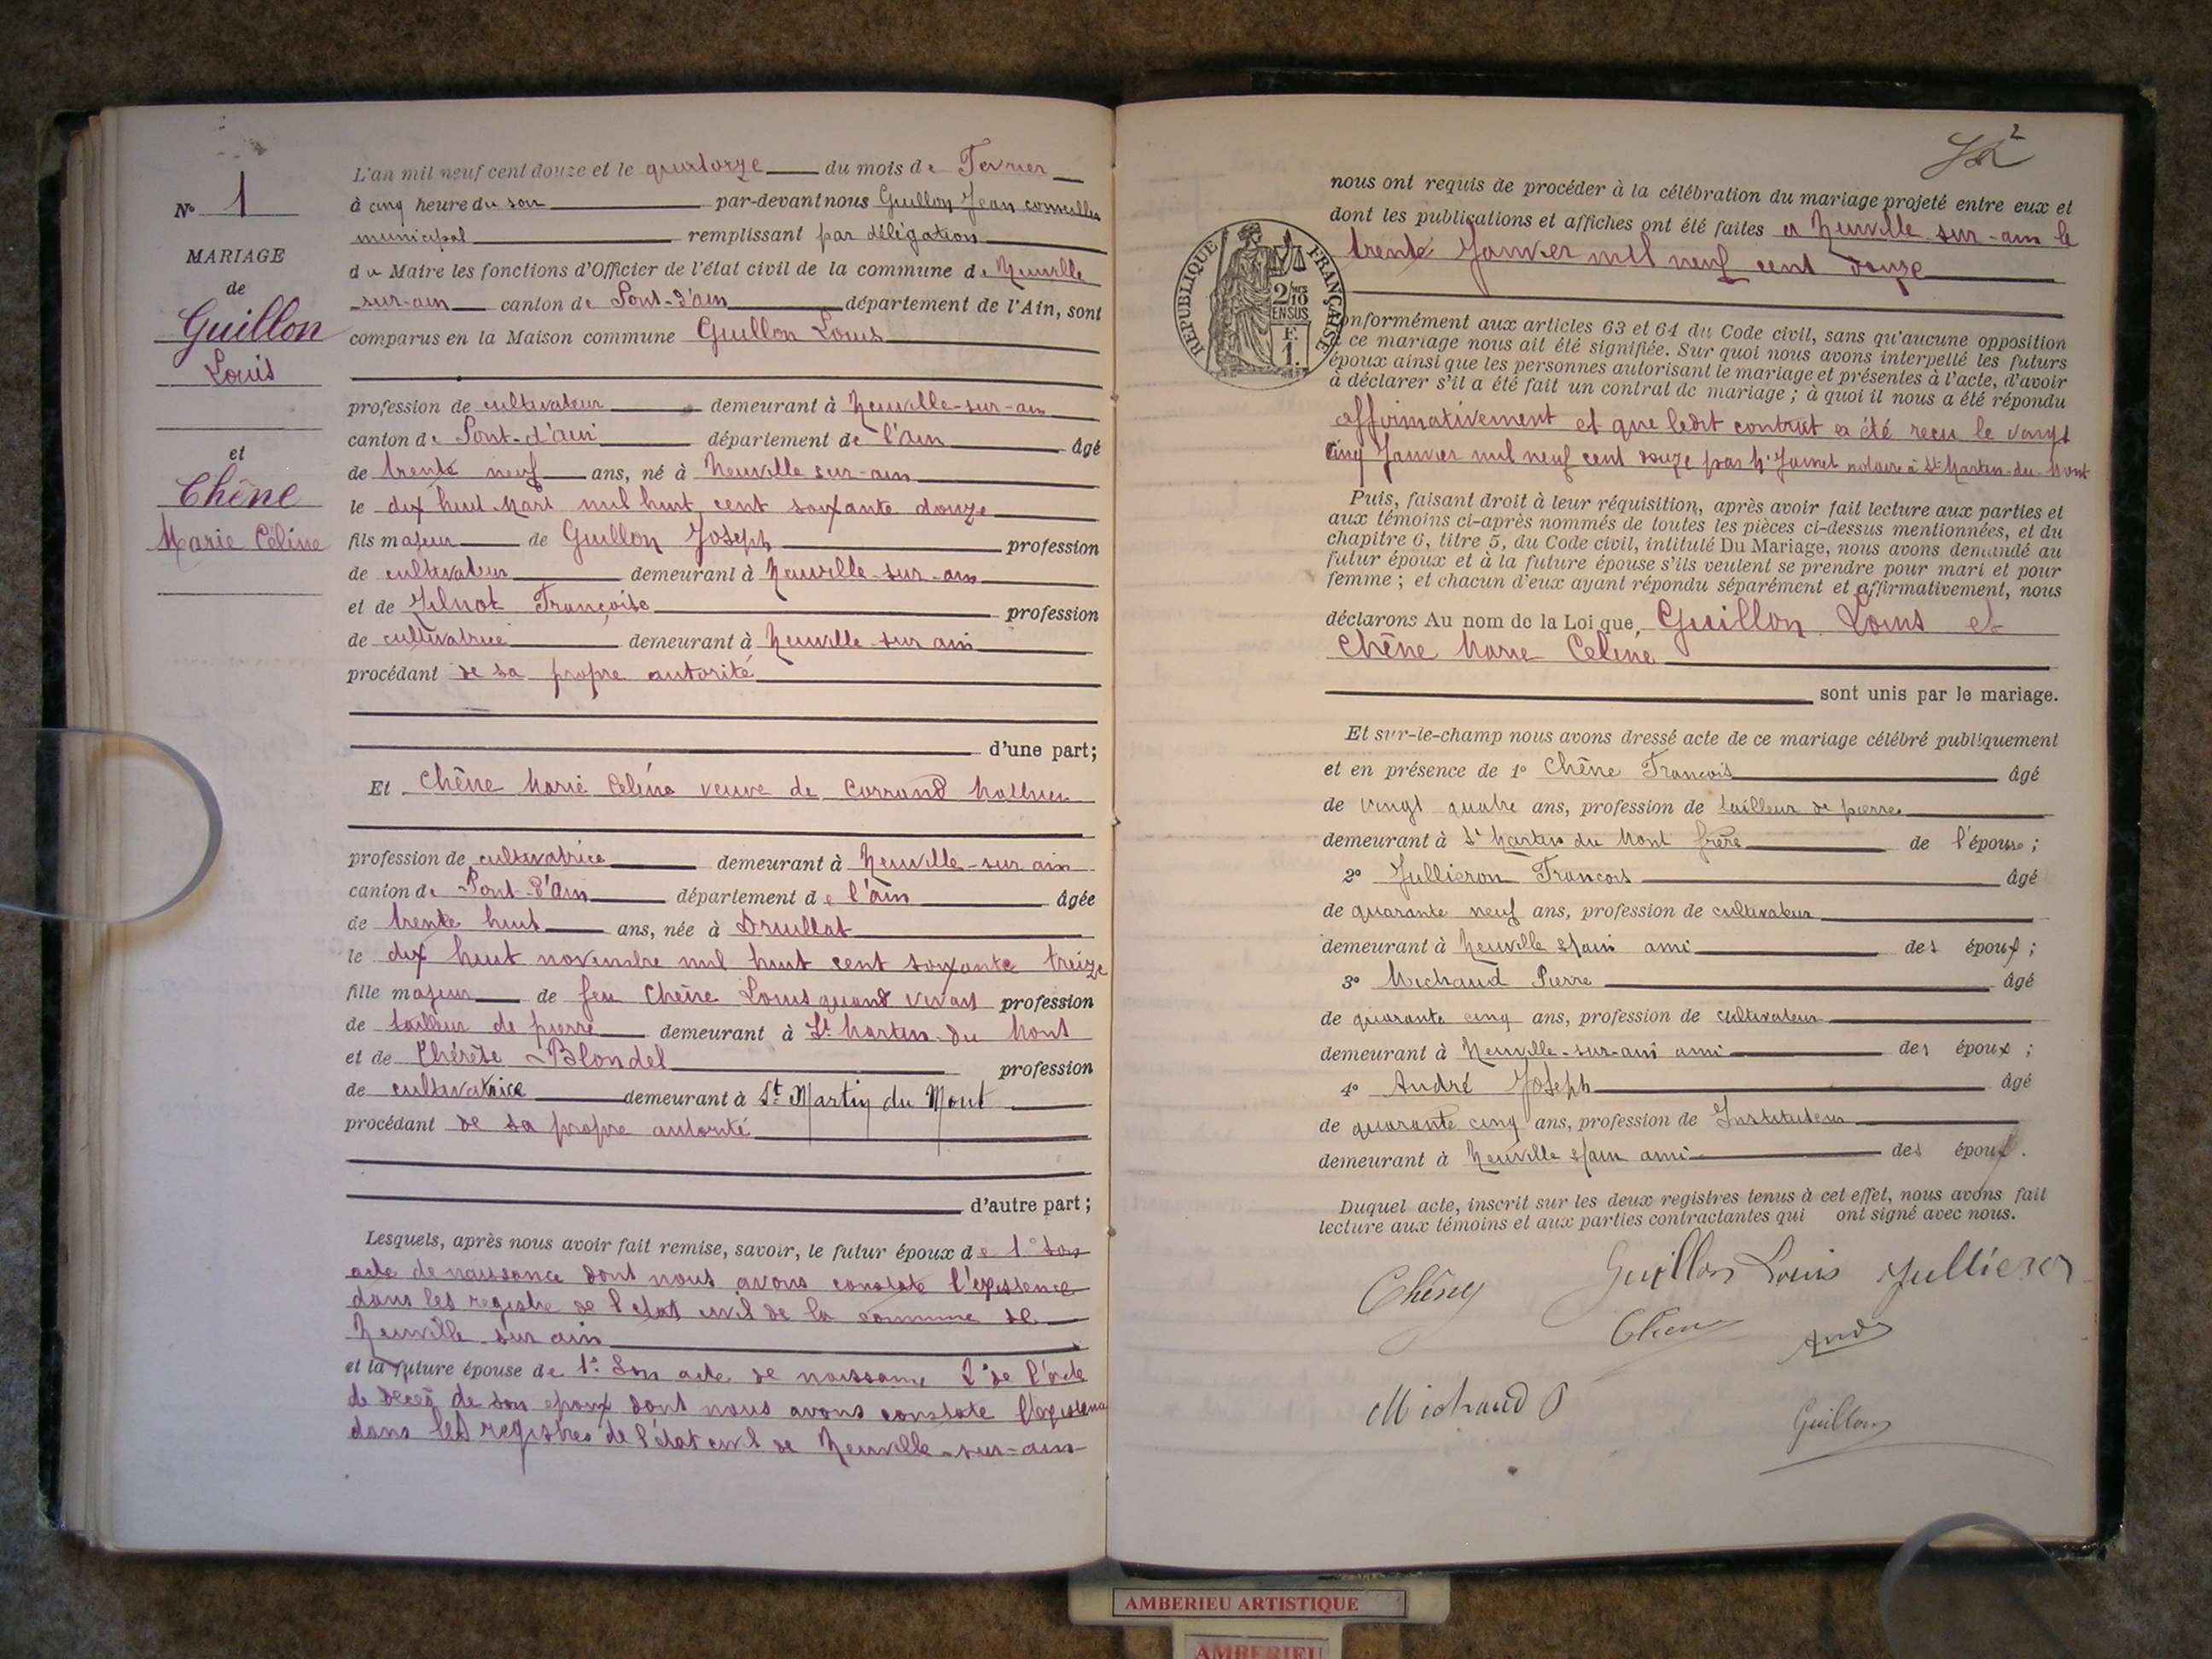 N° 1
MARIAGE
de
Guillon
Louis
et
Chêne
Marie Céline
L'an mil neuf cent douze et le quatorze du mois de Fevrier
à cinq heure du soir par-devant nous Guillon Jean conseiller
municipal remplissant par délégation
du Maire les fonctions d'Officier de l'état civil de la commune de Neuville
sur-ain canton de Pont-d'ain département de l'Ain, sont
comparus en la Maison commune Guillon Louis
profession de cultivateur demeurant à Neuville-sur-ain
canton de Pont-d'ain département de l'ain âgé
de trente neuf ans, né à Neuville sur-ain
le dix huit Mars mil huit cent soixante douze
fils majeur de Guillon Joseph profession
de cultivateur demeurant à Neuville-sur-ain
et de Françoise profession
de cultivatrice demeurant à Neuville sur ain
procédant de sa propre autorité
d'une part;
Et Chêne Marie Celina veuve de Corrand Mathieu
profession de cultivatrice demeurant à Neuville-sur ain
canton de Pont-d'Ain département de l'ain âgée
de trente huit ans, née à Druillat
le dix huit novembre mil huit cent soixante treize
fille majeur de feu Chêne Louis quand vivait profession
de tailleur de pierre demeurant à St Martin-du Mont
et de Thérèse Blondel profession
de cultivatrice demeurant à St. Martin du Mont
procédant de sa propre autorité
d'autre part;
Lesquels, après nous avoir fait remise, savoir, le futur époux de 1° son
acte de naissance dont nous avons constaté l'existence
dans les registre de l'etat civil de la commune de
Neuville sur ain
et la future épouse de 1° Son acte de naissance 2° de l'acte
de décès de son epoux dont nous avons constate l'existence
dans les registres de l'état civil de Neuville-sur-ain
2
nous ont requis de procéder à la célébration du mariage projeté entre eux et
dont les publications et affiches ont été faites a Neuville sur-ain le
trente Janvier mil neuf cent douze
REPUBLIQUE FRANÇAISE
2/10 EN SUS
F.
1.
onformément aux articles 63 et 64 du Code civil, sans qu'aucune opposition
ce mariage nous ait été signifiée. Sur quoi nous avons interpellé les futurs
époux ainsi que les personnes autorisant le mariage et présentes à l'acte, d'avoir
à déclarer s'il a été fait un contrat de mariage ; à quoi il nous a été répondu
affirmativement et que ledit contrat a été recu le vingt
cinq Janvier mil neuf cent douze par notaire à St Martin-du-Mont
Puis, faisant droit à leur réquisition, après avoir fait lecture aux parties et
aux témoins ci-après nommés de toutes les pièces ci-dessus mentionnées, et du
chapitre 6, titre 5, du Code civil, intitulé Du Mariage, nous avons demandé au
futur époux et à la future épouse s'ils veulent se prendre pour mari et pour
femme ; et chacun d'eux ayant répondu séparément et affirmativement, nous
déclarons Au nom de la Loi que, Guillon Louis et
Chêne Marie Celine
sont unis par le mariage.
Et sur-le-champ nous avons dressé acte de ce mariage célébré publiquement
et en présence de 1° Chêne Francois âgé
de vingt quatre ans, profession de tailleur de pierres
demeurant à St Martin du Mont frère de l'épouse ;
2° Jullieron Francois âgé
de quarante neuf ans, profession de cultivateur
demeurant à Neuville s/ain ami des époux ;
3° Michaud Pierre âgé
de quarante cinq ans, profession de cultivateur
demeurant à Neuville-sur-ain ami des époux ;
4° André Joseph âgé
de quarante cinq ans, profession de Instituteur
demeurant à Neuville s/ain ami des époux.
Duquel acte, inscrit sur les deux registres tenus à cet effet, nous avons fait
lecture aux témoins et aux parties contractantes qui ont signé avec nous.
Guillon Louis Jullieron
Chene
Michaud P
Guillon
AMBERIEU ARTISTIQUE
AMBERIEU